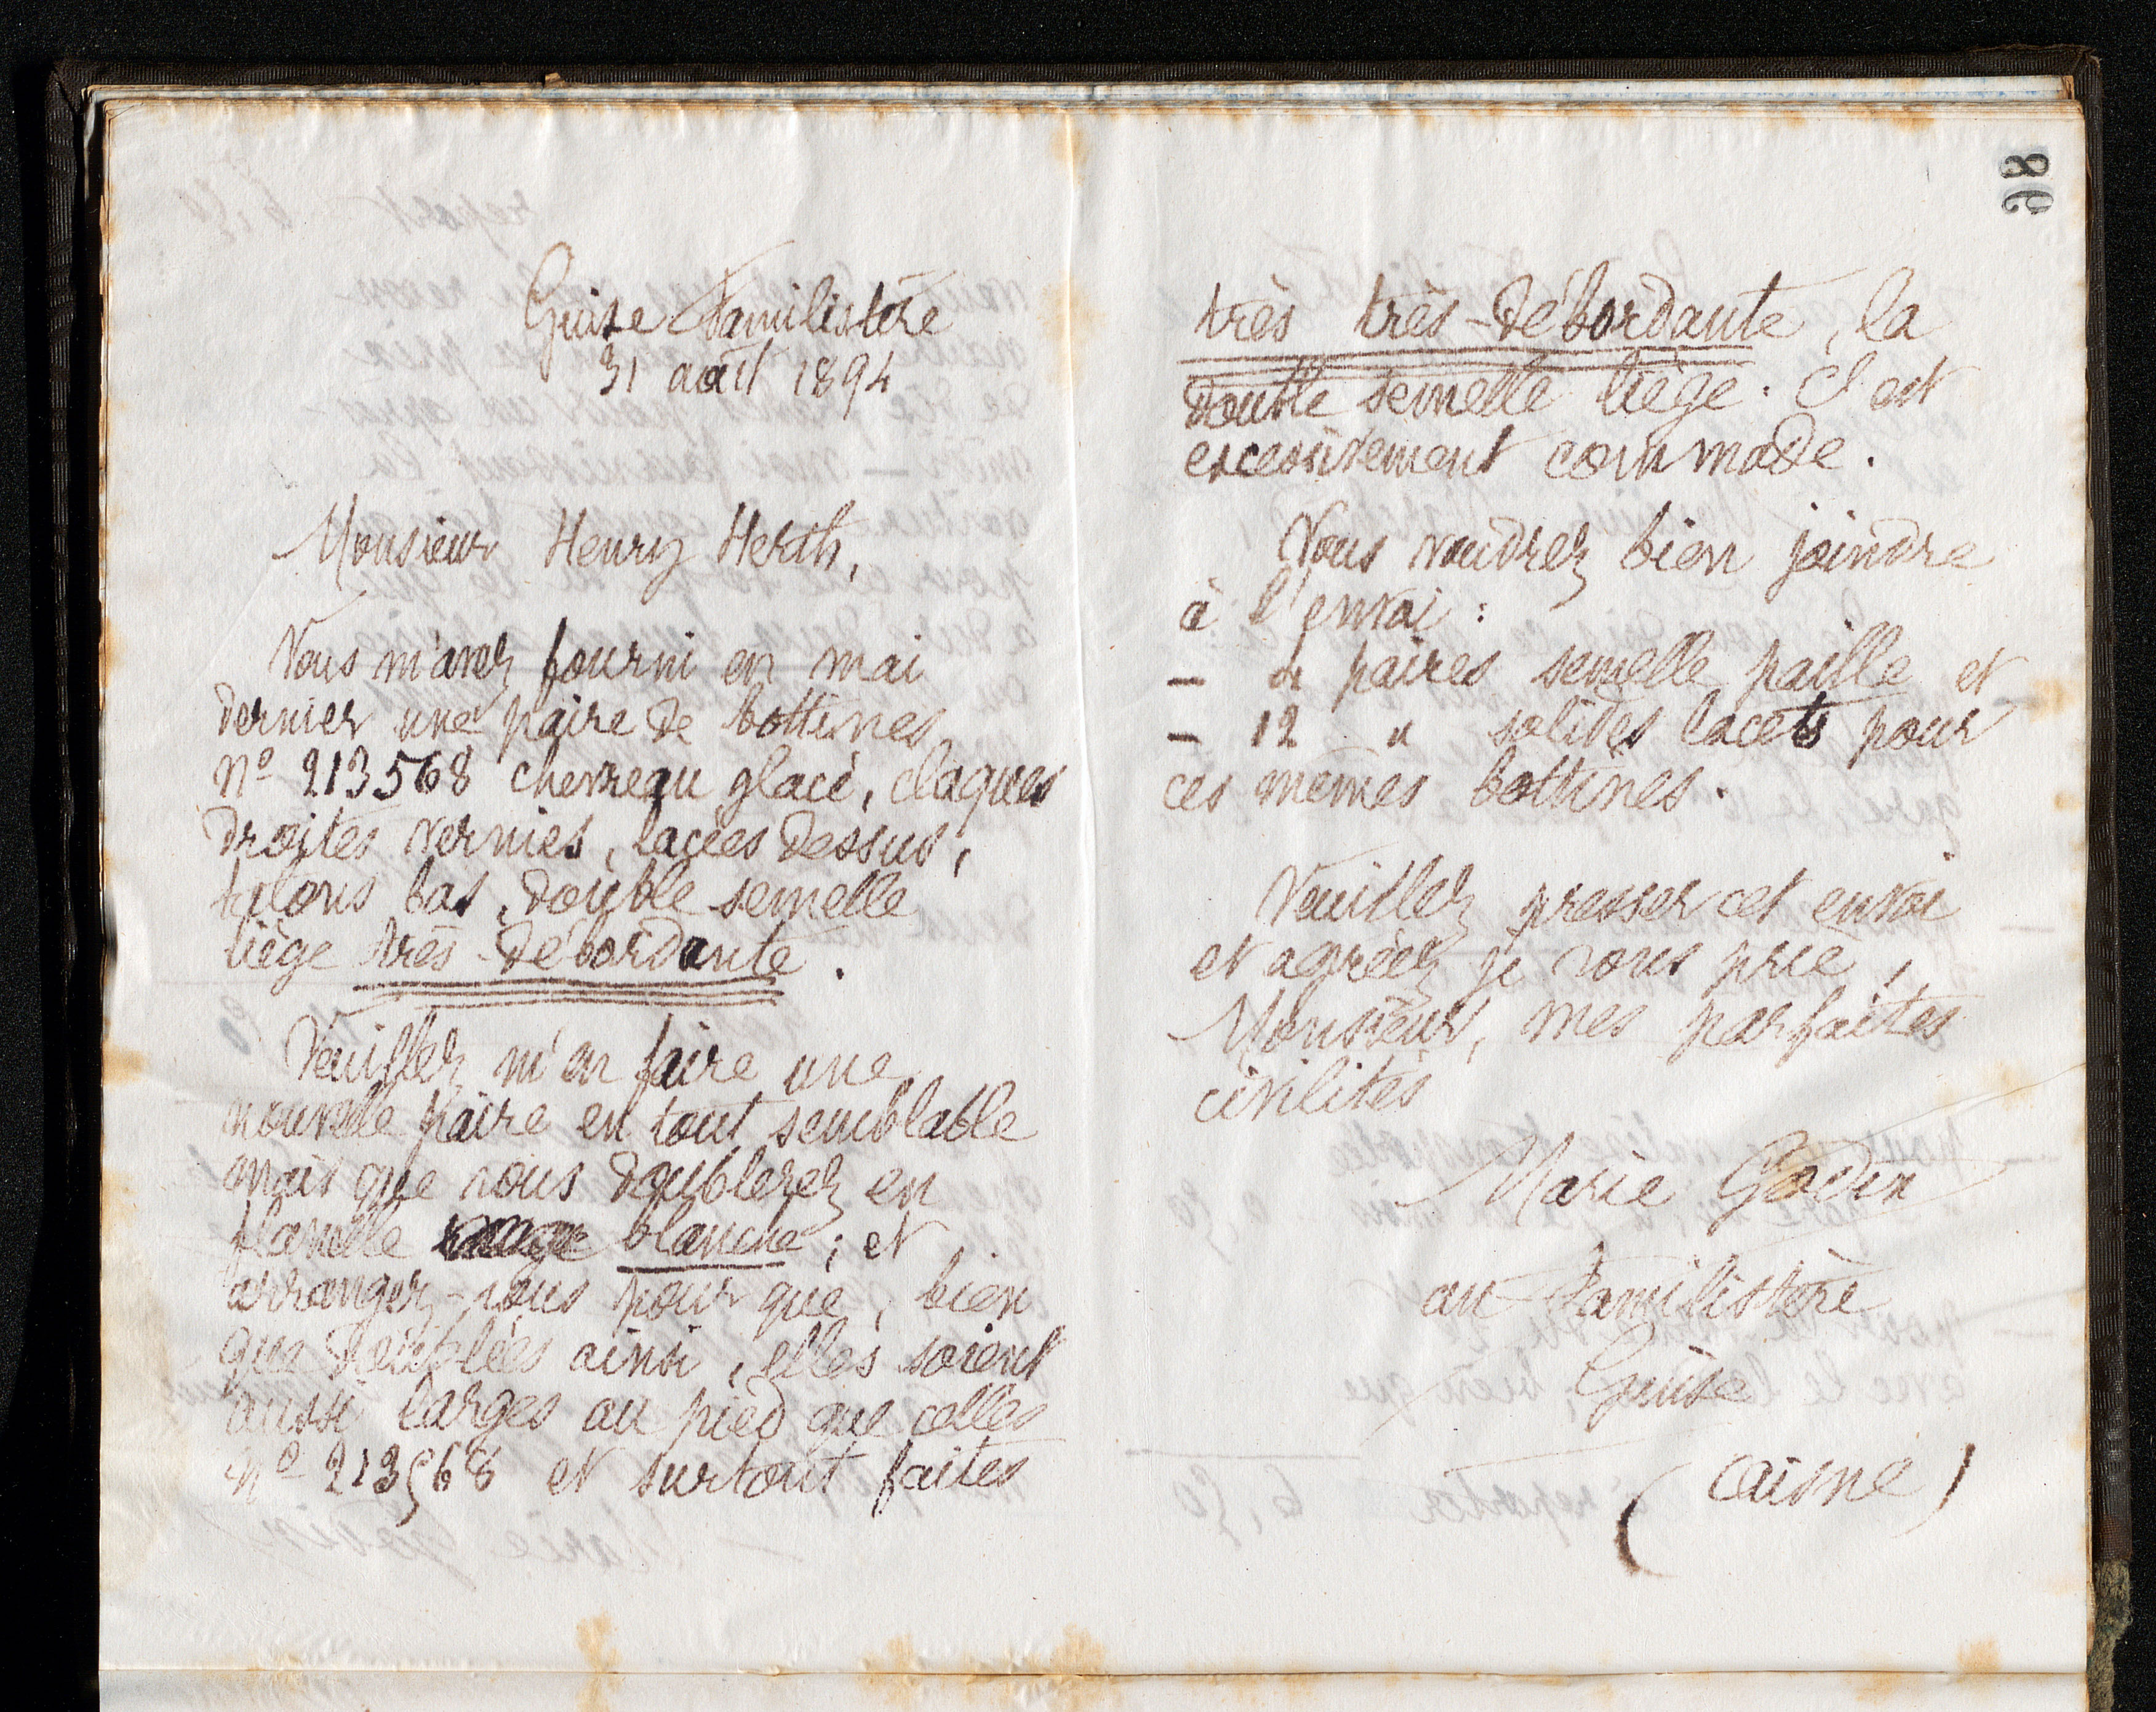 Guise Familistère
31 août 1894
Monsieur Henry Herth,
Vous m'avez fourni en mai
dernier une paire de bottines
No 213568 chevreau glacé, claques
droites vernies, lacées dessus,
talons bas, double semelle
liège très-débordante.
Veuillez m'en faire une
nouvelle paire en tout semblable
mais que vous doublerez en
flanelle blanche ; et
arrangez-vous pour que, bien
que doublées ainsi, elles soient
aussi larges au pied que celles
No 213568 et surtout faites
98
très très-débordante, la
double semelle liège. C'est
excessivement commode.
Vous voudrez bien joindre
à l'envoi :
- paires semelle paille et
- 12 " solides lacets pour
ces mêmes bottines.
Veuillez presser cet envoi
et agréez je vous prie,
Monsieur, mes parfaites
civilités
Marie Godin
au Familistère
Guise
(Aisne)